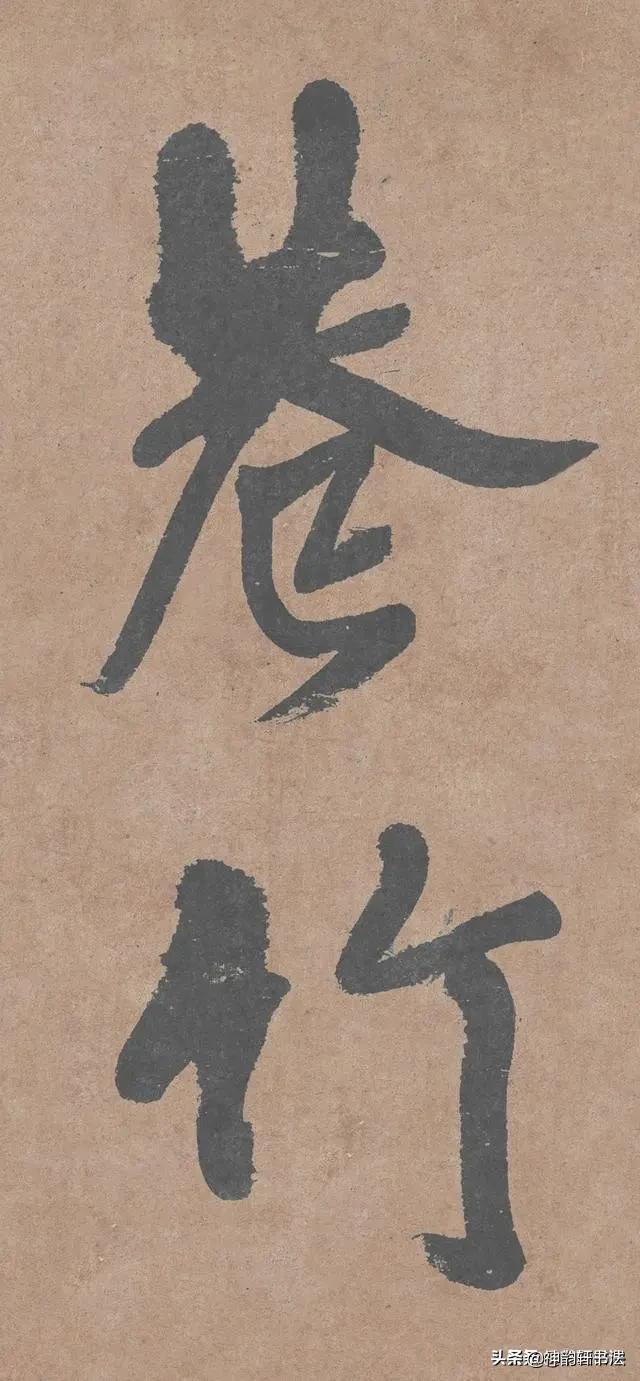 巷竹
头条 @神韵轩书法